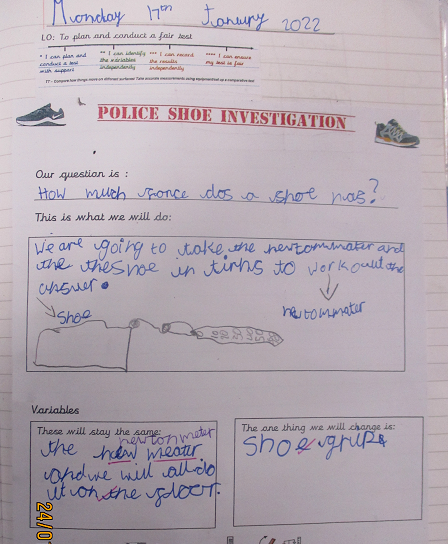 Monday 17th January 2022
LO: To plan and conduct a fair test
* I can plan and conduct a test with support
** I can identify the variables independently
*** I can record the results independently
**** I can ensure my test is fair
POLICE SHOE INVESTIGATION
Our question is :
How much force dos a shoe has?
This is what we will do:
We are going to take the newtommater and
the the shoe in tirns to work out the
answer.
newtommater
Shoe
Variables
These will stay the same:
newtonmeter
the new meater.
and we will all do
it on the floor.
The one thing we will change is:
Shoe grip
24/0